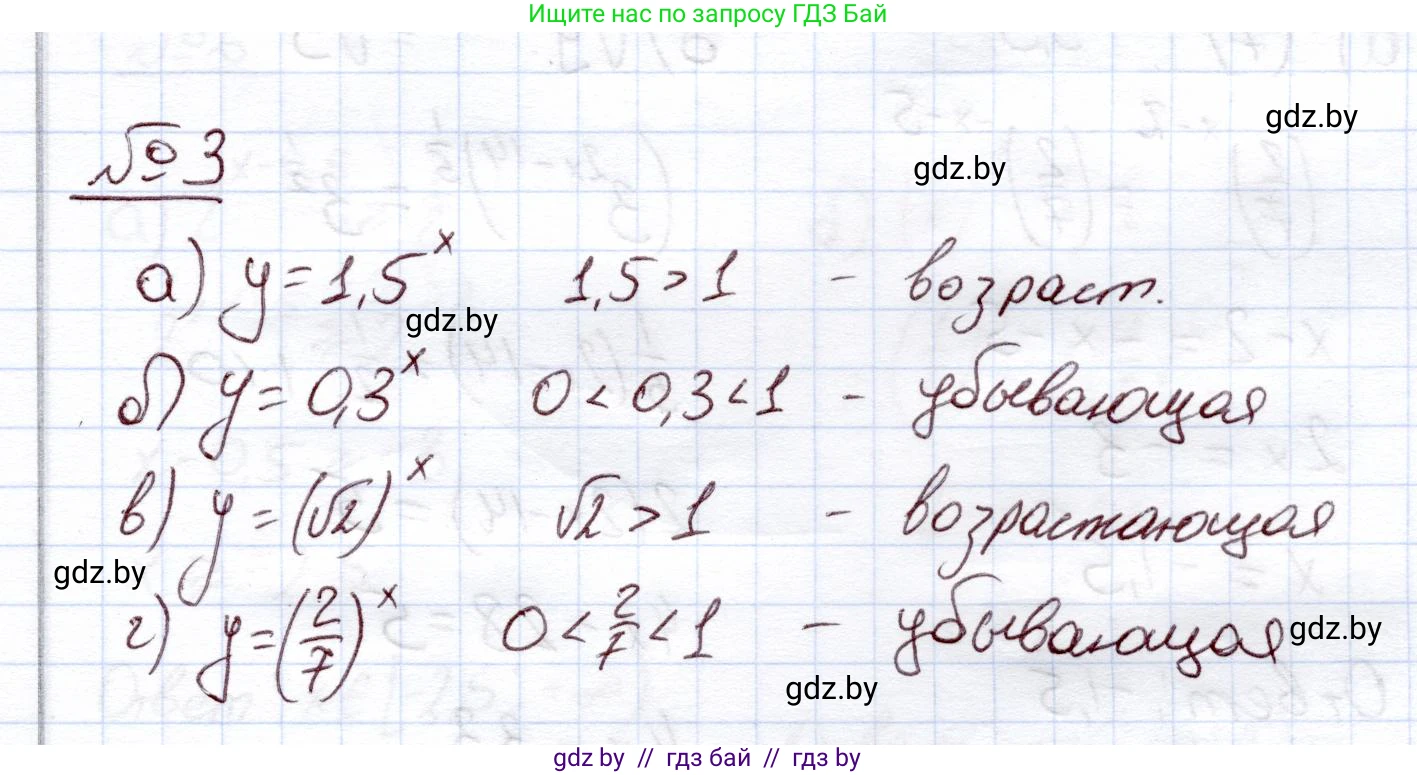 Ищите нас по запросу ГДЗ Бай
gdz.by
gdz.by
№ 3
а) y = 1,5^x 1,5 > 1 - возраст.
gdz.by
б) y = 0,3^x 0 < 0,3 < 1 - убывающая
в) y = (√2)^x √2 > 1 - возрастающая
gdz.by
г) y = (2/7)^x 0 < 2/7 < 1 - убывающая
gdz.by
gdz.by
gdz.by // гдз бай // гдз by